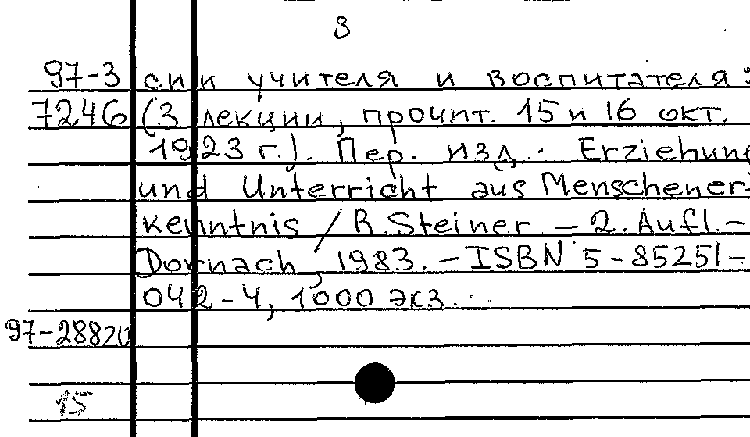 3
97-3 сии учителя и воспитателя:
7246 (3 лекции, прочит. 15 и 16 окт.
1923 г.). Пер. изд.: Erziehung
und Unterricht aus Menschener-
kenntnis / R. Steiner. - 2. Aufl. -
Dornach, 1983. - ISBN 5-85251-
042-4, 1000 экз.
97-28820
15